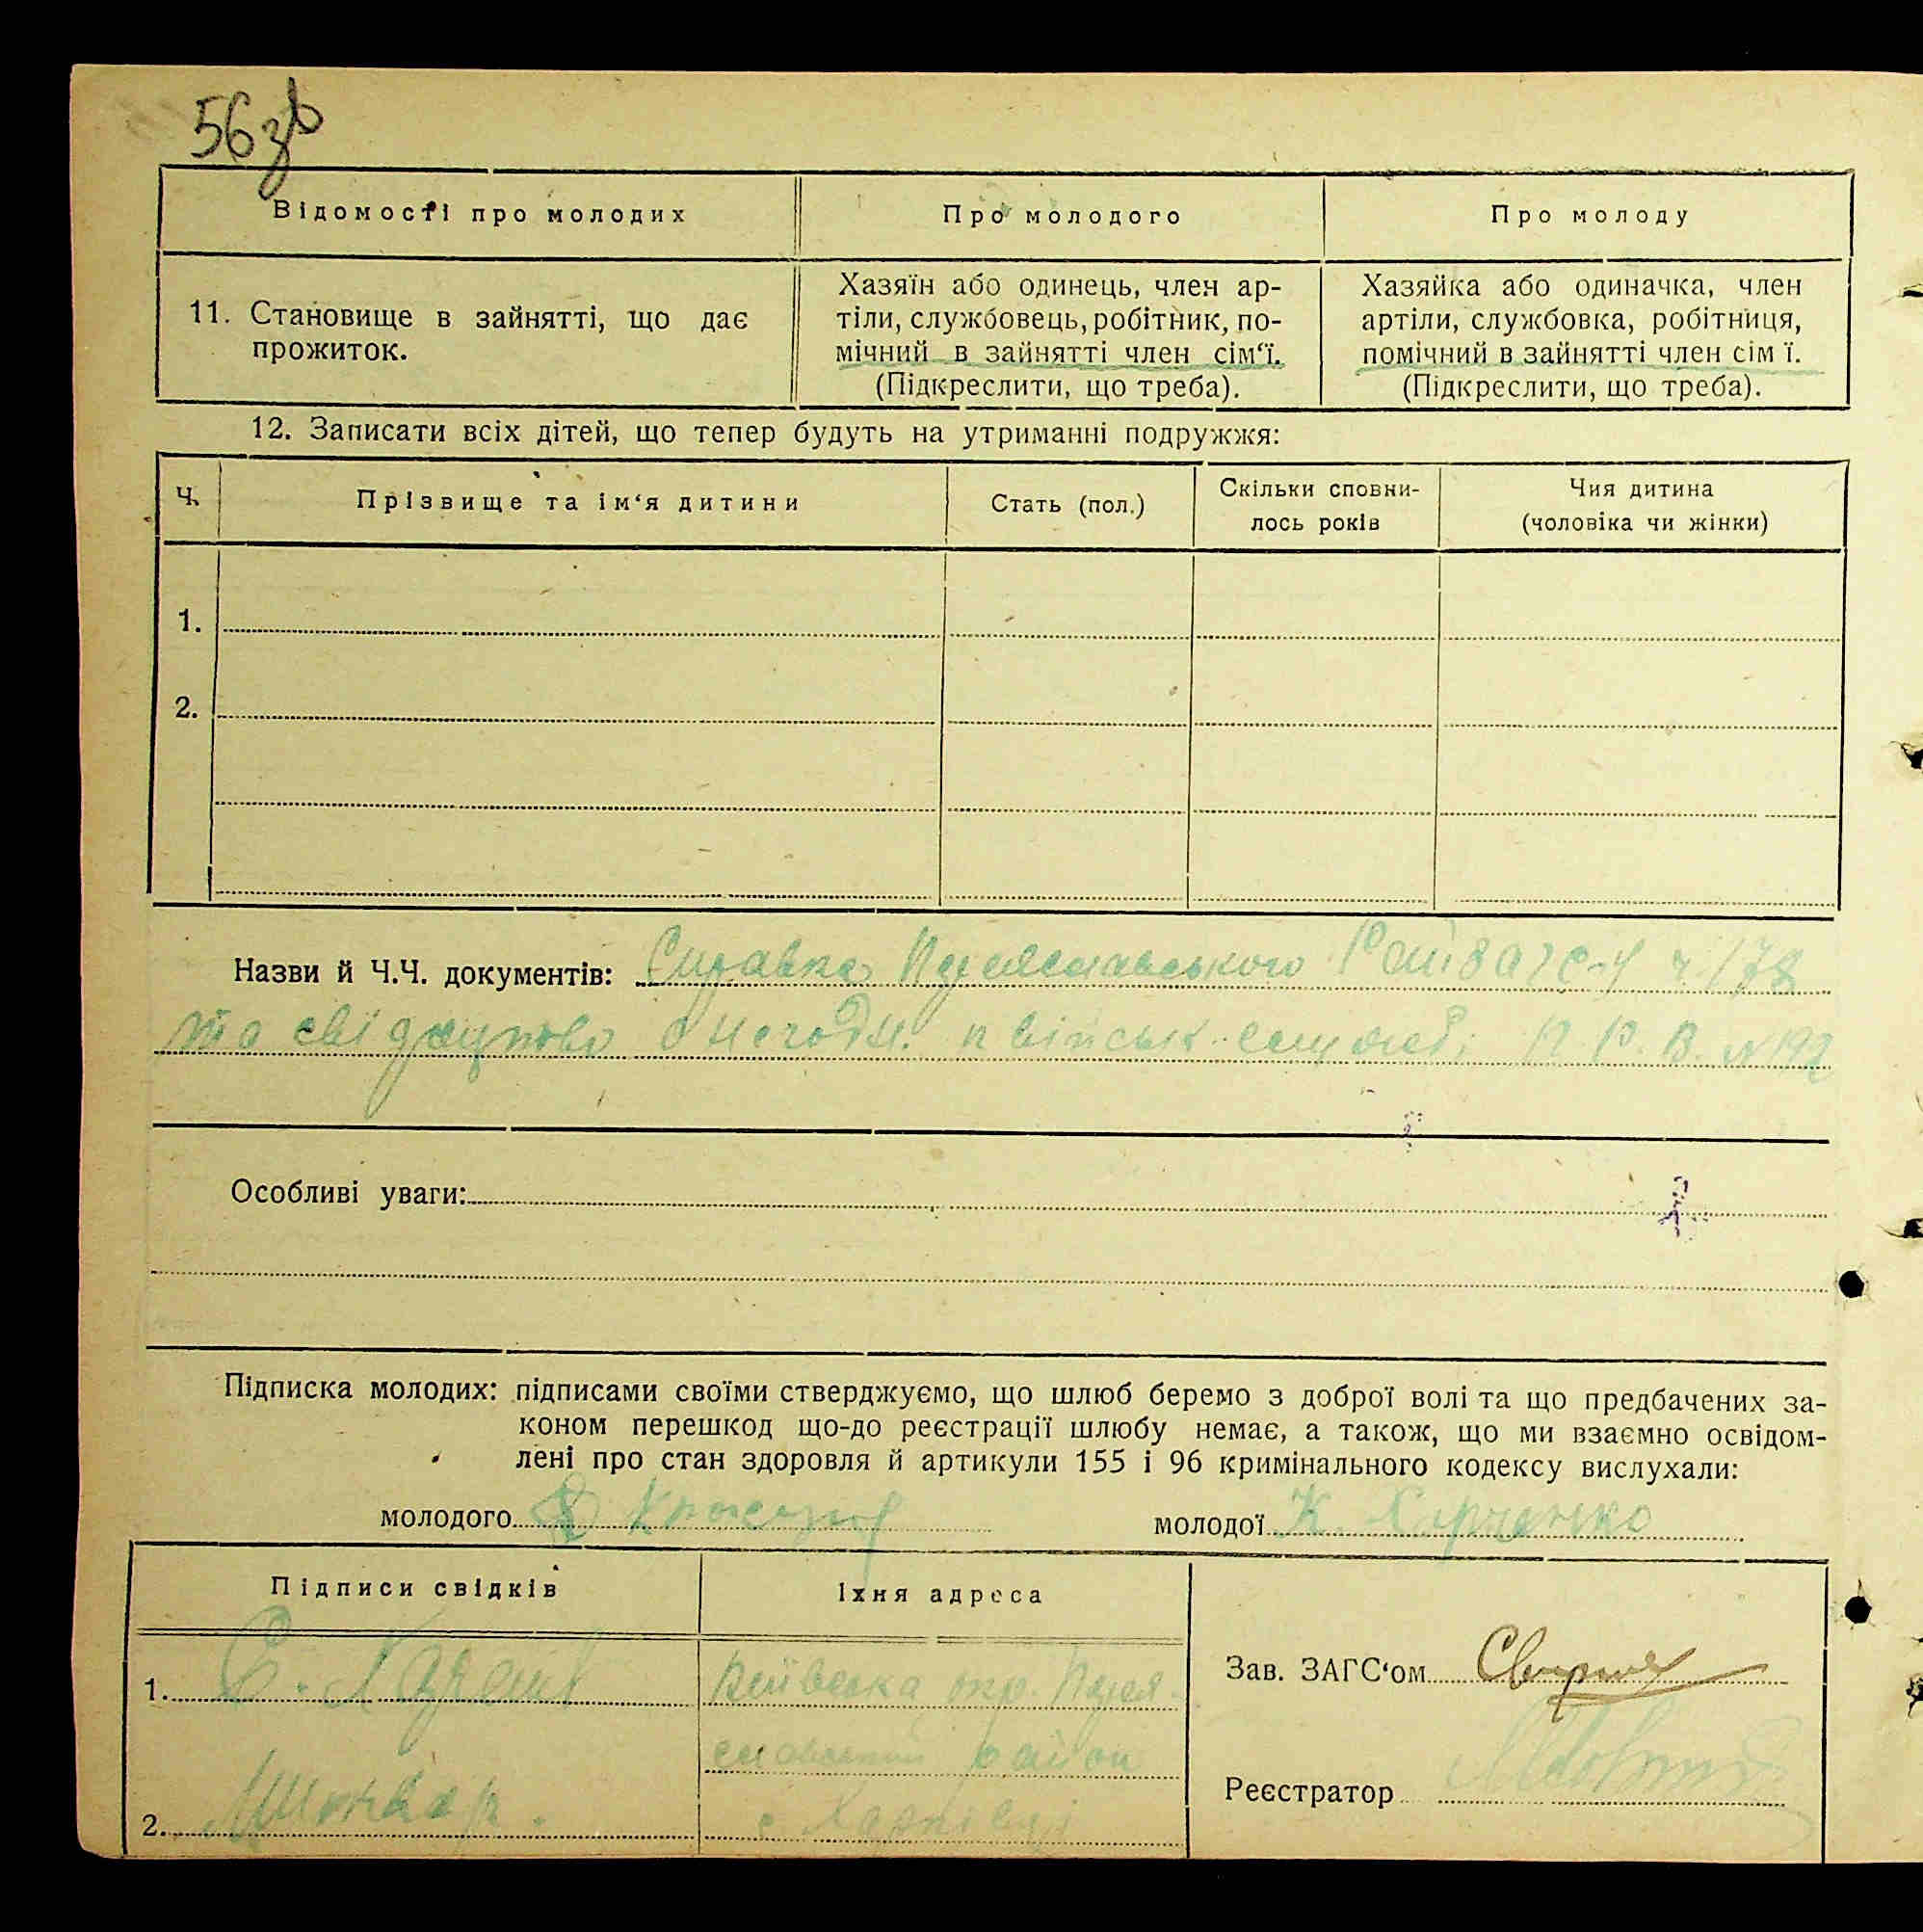 56 зв
Відомості про молодих
Про молодого
Про молоду
11. Становище в зайнятті, що дає
прожиток.
Хазяїн або одинець, член ар-
тіли, службовець, робітник, по-
мічний в зайнятті член сім‘ї.
(Підкреслити, що треба).
Хазяйка або одиначка, член
артіли, службовка, робітниця,
помічний в зайнятті член сім ї.
(Підкреслити, що треба).
12. Записати всіх дітей, що тепер будуть на утриманні подружжя:
Ч.
Прізвище та ім‘я дитини
Стать (пол.)
Скільки сповни-
лось років
Чия дитина
(чоловіка чи жінки)
1.
2.
Назви й Ч.Ч. документів: Справка Переяславського ч. 178
та о військ. П. Р. В. № 192
Особливі уваги:
Підписка молодих: підписами своїми стверджуємо, що шлюб беремо з доброї волі та що предбачених за-
коном перешкод що-до реєстрації шлюбу немає, а також, що ми взаємно освідом-
лені про стан здоровля й артикули 155 і 96 кримінального кодексу вислухали:
молодого
молодої К. Харченко
Підписи свідків
Їхня адреса
1.
окр. Перея-
славський район
2.
с.
Зав. ЗАГС‘ом
Реєстратор